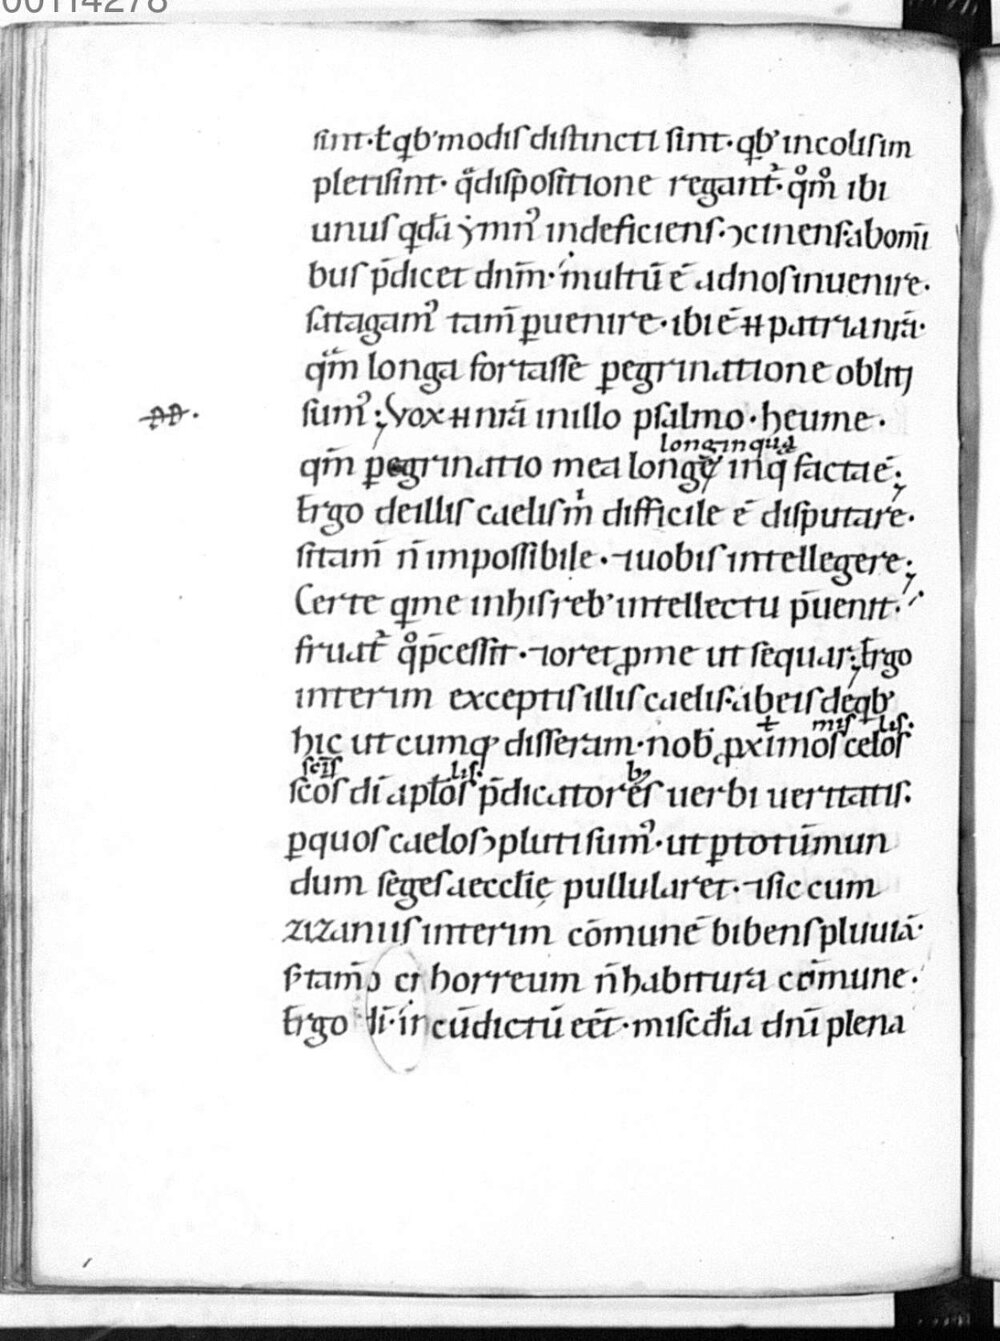 00114278
sint· ł qb' modis distincti sint· qb' incolis im
pleti sint· q̄ dispositione regant᷑· qͦmͦ ibi
unus qdā ẏmn᷒ indeficiens· ɔcinens ab om̄i
bus p̄dicet dnm̄· multū ē ad nos inuenire·
satagam᷒ tam̄ ꝑuenire· ibi ē ħ patria nr̄a·
qm̄ longa fortasse ꝑegrinatione obliti
sum᷒; Vox ħ nr̄a in illo psalmo· heu me·
longinqua
qm̄ ꝑegrinatio mea longę inq̄ facta ē;
Ergo de illis caelis m̄ difficile ē disputare·
sī tam̄ n̄ impossibile· ⁊ uobis intellegere;
Certe q me in his reb' intellectu p̄uenit·
fruat᷑ qͦ p̄cessit· ⁊ oret ꝓ me ut sequar; Ergo
interim exceptis illis caelis· ab eis de qb'
t mis lis·
hic ut cumq; disseram· nob̄ ꝓximos celos
scīs lis· b;
scōs dī apłos p̄dicatores uerbi ueritatis·
ꝑ quos caelos ɔpluti sum᷒· ut ꝑ totū mun
dum seges aecclīę pullularet· ⁊ si cum
zizaniis interim cōmunē bibens pluuiā·
horreum n̄ habitura cōmune·
Ergo cū dictū eēt· misc̄dia dnī plena